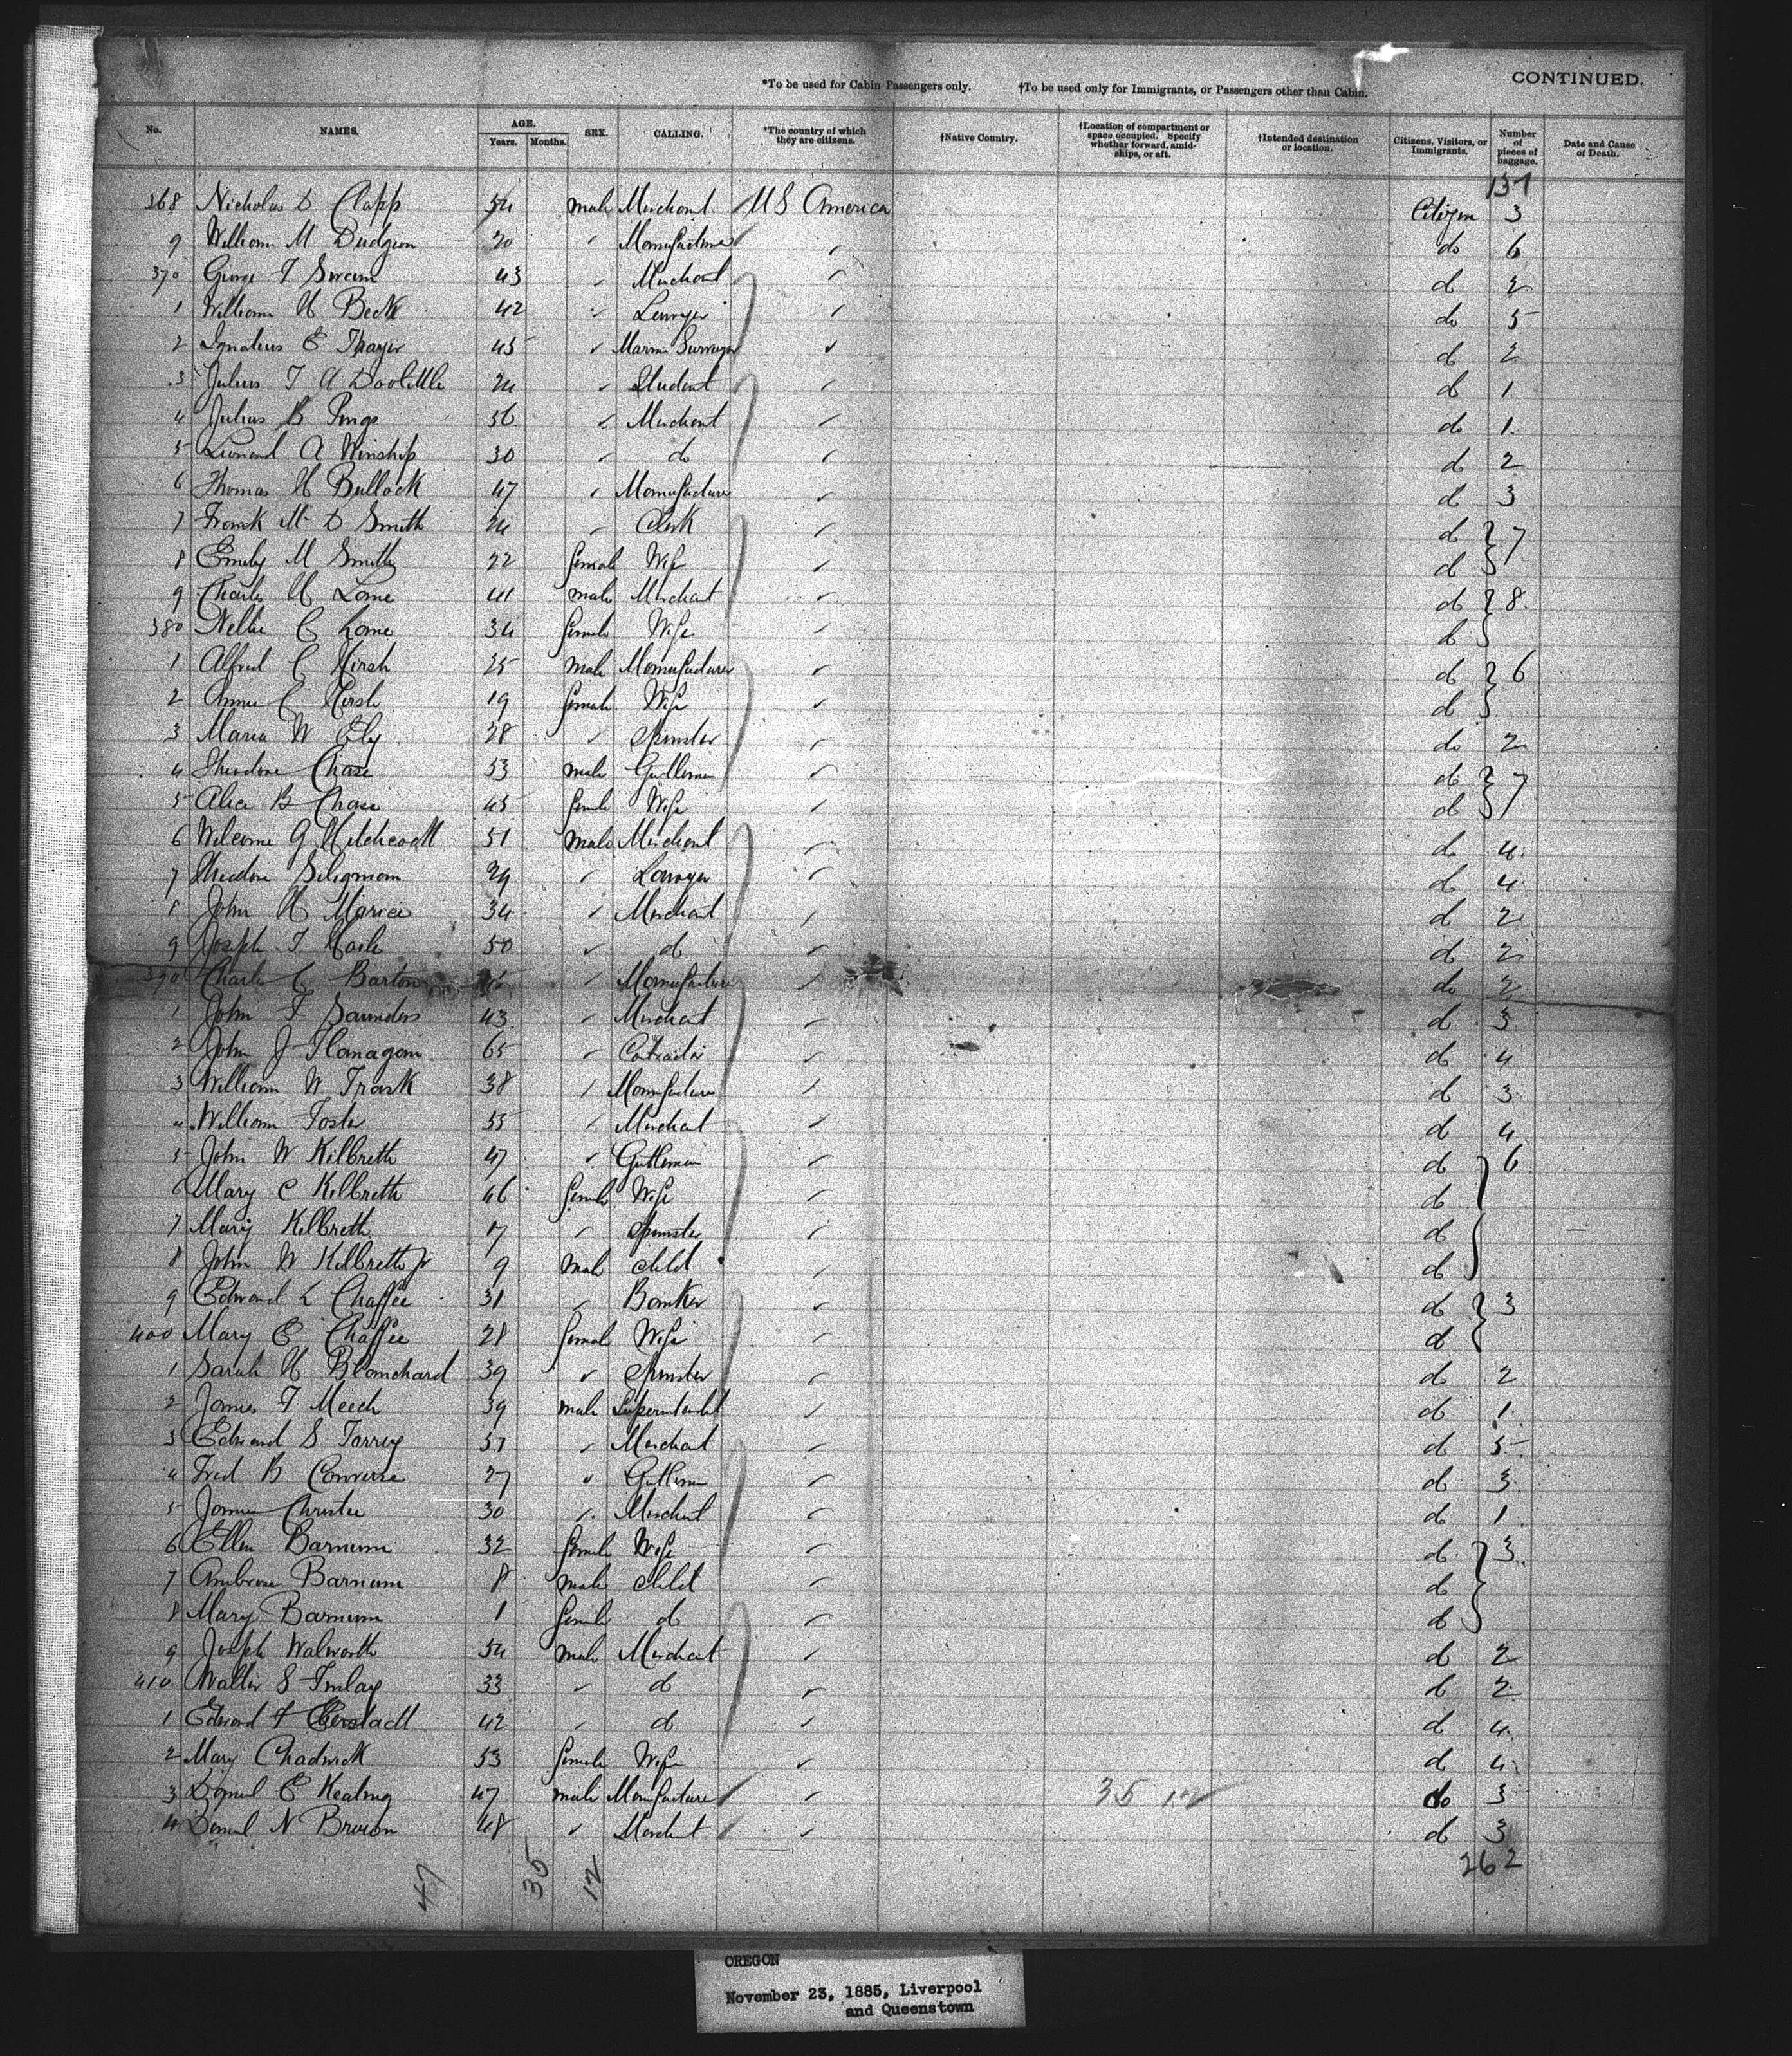 *To be used for Cabin Passengers only. †To be used only for Immigrants, or Passengers other than Cabin. CONTINUED.
No. NAMES. AGE. Years. Months. SEX. CALLING. *The country of which they are citizens. †Native Country. †Location of compartment or space occupied. Specify whether forward, amidships, or aft. †Intended destination or location. Citizens, Visitors, or Immigrants. Number of pieces of baggage. Date and Cause of Death.
137
368 Nicholas D Clapp 54 male Merchant U S America Citizen 3
9 William M Dudgeon 20 Manufacturer do 6
370 George F Swain 43 Merchant do 2
1 William H Beck 42 Lawyer do 5
2 Ignatius E Thayer 45 Marine Surveyor do 2
3 Julius T A Doolittle 24 Student do 1
4 Julius B 56 Merchant do 1
5 A Winship 30 do do 2
6 Thomas H Bullock 47 Manufacturer do 3
7 Frank M D Smith 24 Clerk do 7
8 Emily M Smith 22 female Wife do
9 Charles H 41 male Merchant do 8
380 Nellie C 34 female Wife do
1 Alfred C Hirsh 25 male Manufacturer do 6
2 Annie C Hirsh 19 female Wife do
3 Maria W Ely 28 Spinster do 2
4 Theodore Chase 53 male Gentleman do 7
5 Alice B Chase 45 female Wife do
6 Welcome G Hitchcock 51 male Merchant do 4
7 Theodore Seligman 29 Lawyer do 4
8 John H 34 Merchant do 2
9 Joseph T 50 do do 2
390 Charles C Barton Manufacturer do 2
1 John F Saunders 43 Merchant do 3
2 John J Flanagan 65 Contractor do 4
3 William W Trask 38 Manufacturer do 3
4 William Foster 55 Merchant do 4
5 John W Kilbreth 47 Gentleman do 6
6 Mary C Kilbreth 46 female Wife do
7 Mary Kilbreth 17 Spinster do
8 John W Kilbreth Jr 9 male child do
9 Edward L Chaffee 31 Banker do 3
400 Mary E Chaffee 28 female Wife do
1 Sarah H Blanchard 39 Spinster do 2
2 James F Meech 39 male Superintendent do 1
3 Edward S Torrey 57 Merchant do 5
4 Fred B Converse 27 Gentleman do 3
5 James Christie 30 Merchant do 1
6 Ellen Barnum 32 female Wife do 3
7 Ambrose Barnum 8 male child do
8 Mary Barnum 1 female do do
9 Joseph Walworth 54 male Merchant do 2
410 Walter S Finlay 33 do do 2
1 Edward F Eberstadt 42 do do 4
2 Mary Chadwick 53 female Wife do 4
3 Daniel E Keating 47 male Manufacturer 35 12 do 3
4 N Brown 48 Merchant do 3
47 35 12 262
OREGON
November 23, 1885, Liverpool
and Queenstown